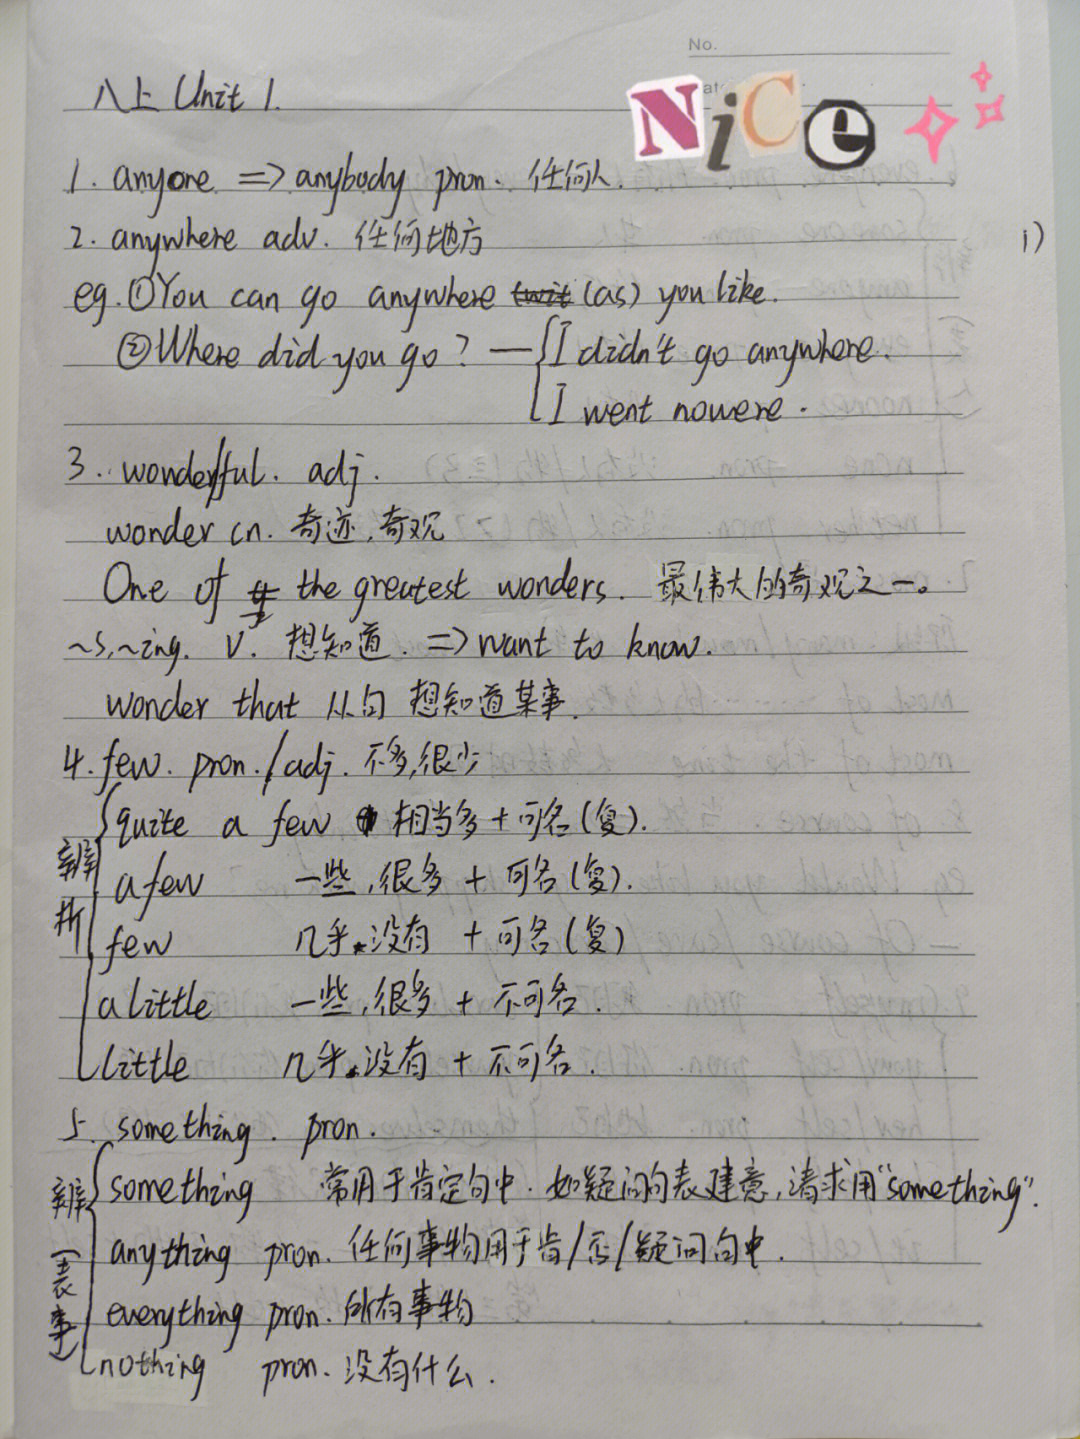 No.
NiCe
八上 Unit 1.
1. anyone => anybody pron. 任何人.
2. anywhere adv. 任何地方
1)
eg. ①You can go anywhere (as) you like.
②Where did you go? — I didn't go anywhere.
I went nowere.
3. wonder/ful. adj.
wonder cn. 奇迹, 奇观
One of the greatest wonders. 最伟大的奇观之一。
~s, ~ing. v. 想知道. => want to know.
wonder that 从句 想知道某事.
4. few. pron. / adj. 不多, 很少
辨析
quite a few 相当多 + 可名(复).
a few 一些, 很多 + 可名(复).
few 几乎没有 + 可名(复)
a little 一些, 很多 + 不可名.
little 几乎没有 + 不可名.
5. something. pron.
辨(表事)
something 常用于肯定句中. 如疑问句表建意, 请求用"something".
anything pron. 任何事物用于肯/否/疑问句中.
everything pron. 所有事物
nothing pron. 没有什么.